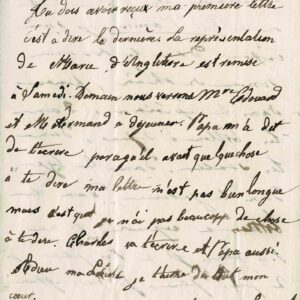 Tu dois avoir reçux ma première lettre
c'est à dire la dernière. La représentation
de Marie d'Angleterre est remise
à Samedi. Demain nous verrons Mme Edouard
et Mr Armand à dejeuner. Papa m'a dit
de t'écrire parcqu'il avait quelque chose
à te dire ma lettre n'est pas bien longue
mais c'est que je n'ai pas beaucoup de chose
à te dire Charles va t'écrire et Papa aussi.
Adieu ma je t'aime de tout mon
cœur.